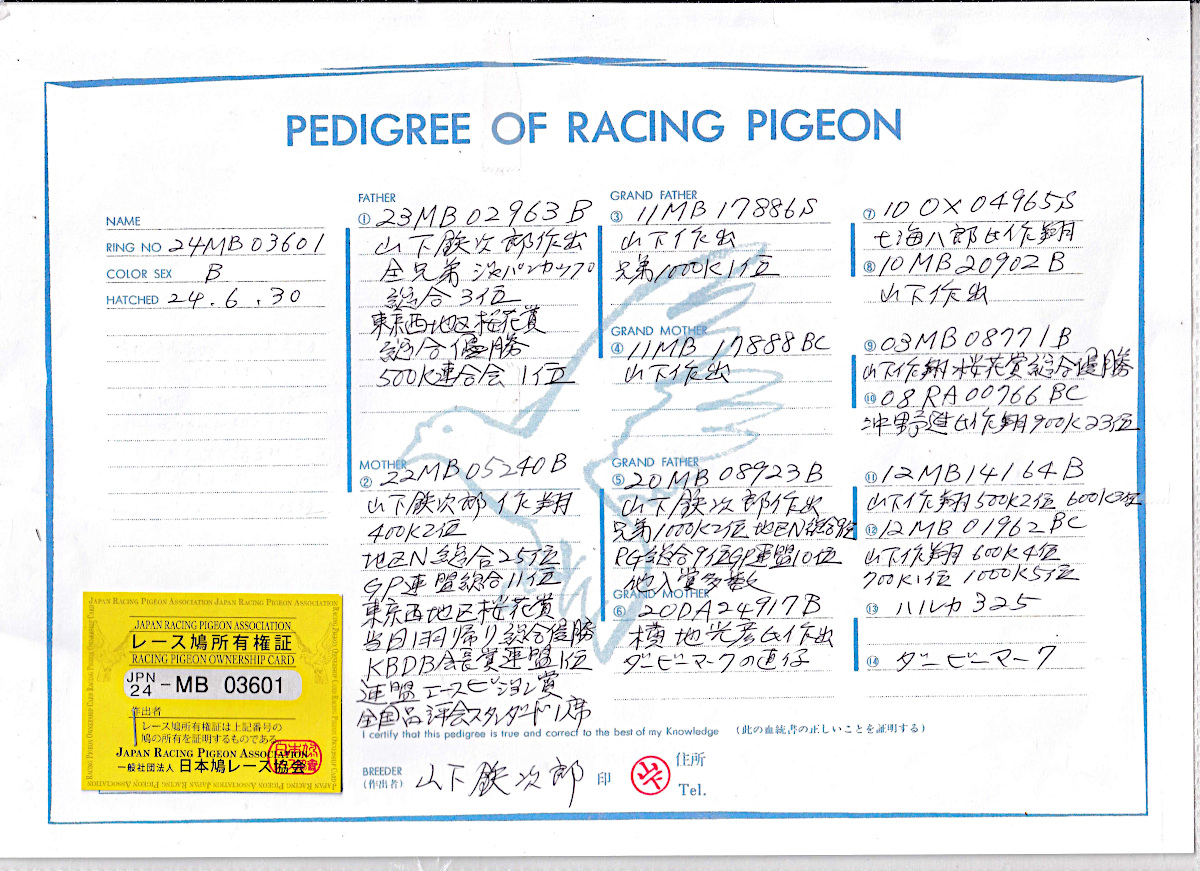 PEDIGREE OF RACING PIGEON
NAME
RING NO 24MB03601
COLOR SEX B
HATCHED 24.6.30
FATHER
① 23MB02963B
山下鉄次郎作出
全兄弟 ジャパンカップ
総合3位
東京西地区桜花賞
総合優勝
500K連合会 1位
MOTHER
② 22MB05240B
山下鉄次郎作翔
400K2位
地区N総合25位
GP連盟総合11位
東京西地区桜花賞
当日1羽帰り総合優勝
KBDB会長賞連盟1位
連盟エースピジョン賞
全国品評会スタンダード1席
GRAND FATHER
③ 11MB17886S
山下作出
兄弟1000K1位
GRAND MOTHER
④ 11MB 17888BC
山下作出
GRAND FATHER
⑤ 20MB08923B
山下鉄次郎作出
兄弟1000K2位地区N総合9位
PG総合9位GP連盟10位
他入賞多数
GRAND MOTHER
⑥ 20DA24917B
横地光彦氏作出
ダービーマークの直仔
⑦ 10OX04965S
七海八郎氏作翔
⑧ 10MB20902B
山下作出
⑨ 03MB08771B
山下作翔桜花賞総合優勝
⑩ 08RA00766BC
沖野進氏作翔900K23位
⑪ 12MB14164B
山下作翔500K2位 600K3位
⑫ 12MB01962BC
山下作翔 600K4位
700K1位 1000K5位
⑬ ハルカ325
⑭ ダービーマーク
I certify that this pedigree is true and correct to the best of my Knowledge (此の血統書の正しいことを証明する)
BREEDER
(作出者) 山下鉄次郎 印
住所
Tel.
JAPAN RACING PIGEON ASSOCIATION
レース鳩所有権証
RACING PIGEON OWNERSHIP CARD
JPN
24 -MB 03601
作出者
レース鳩所有権証は上記番号の
鳩の所有を証明するものである
JAPAN RACING PIGEON ASSOCIATION
一般社団法人 日本鳩レース協会